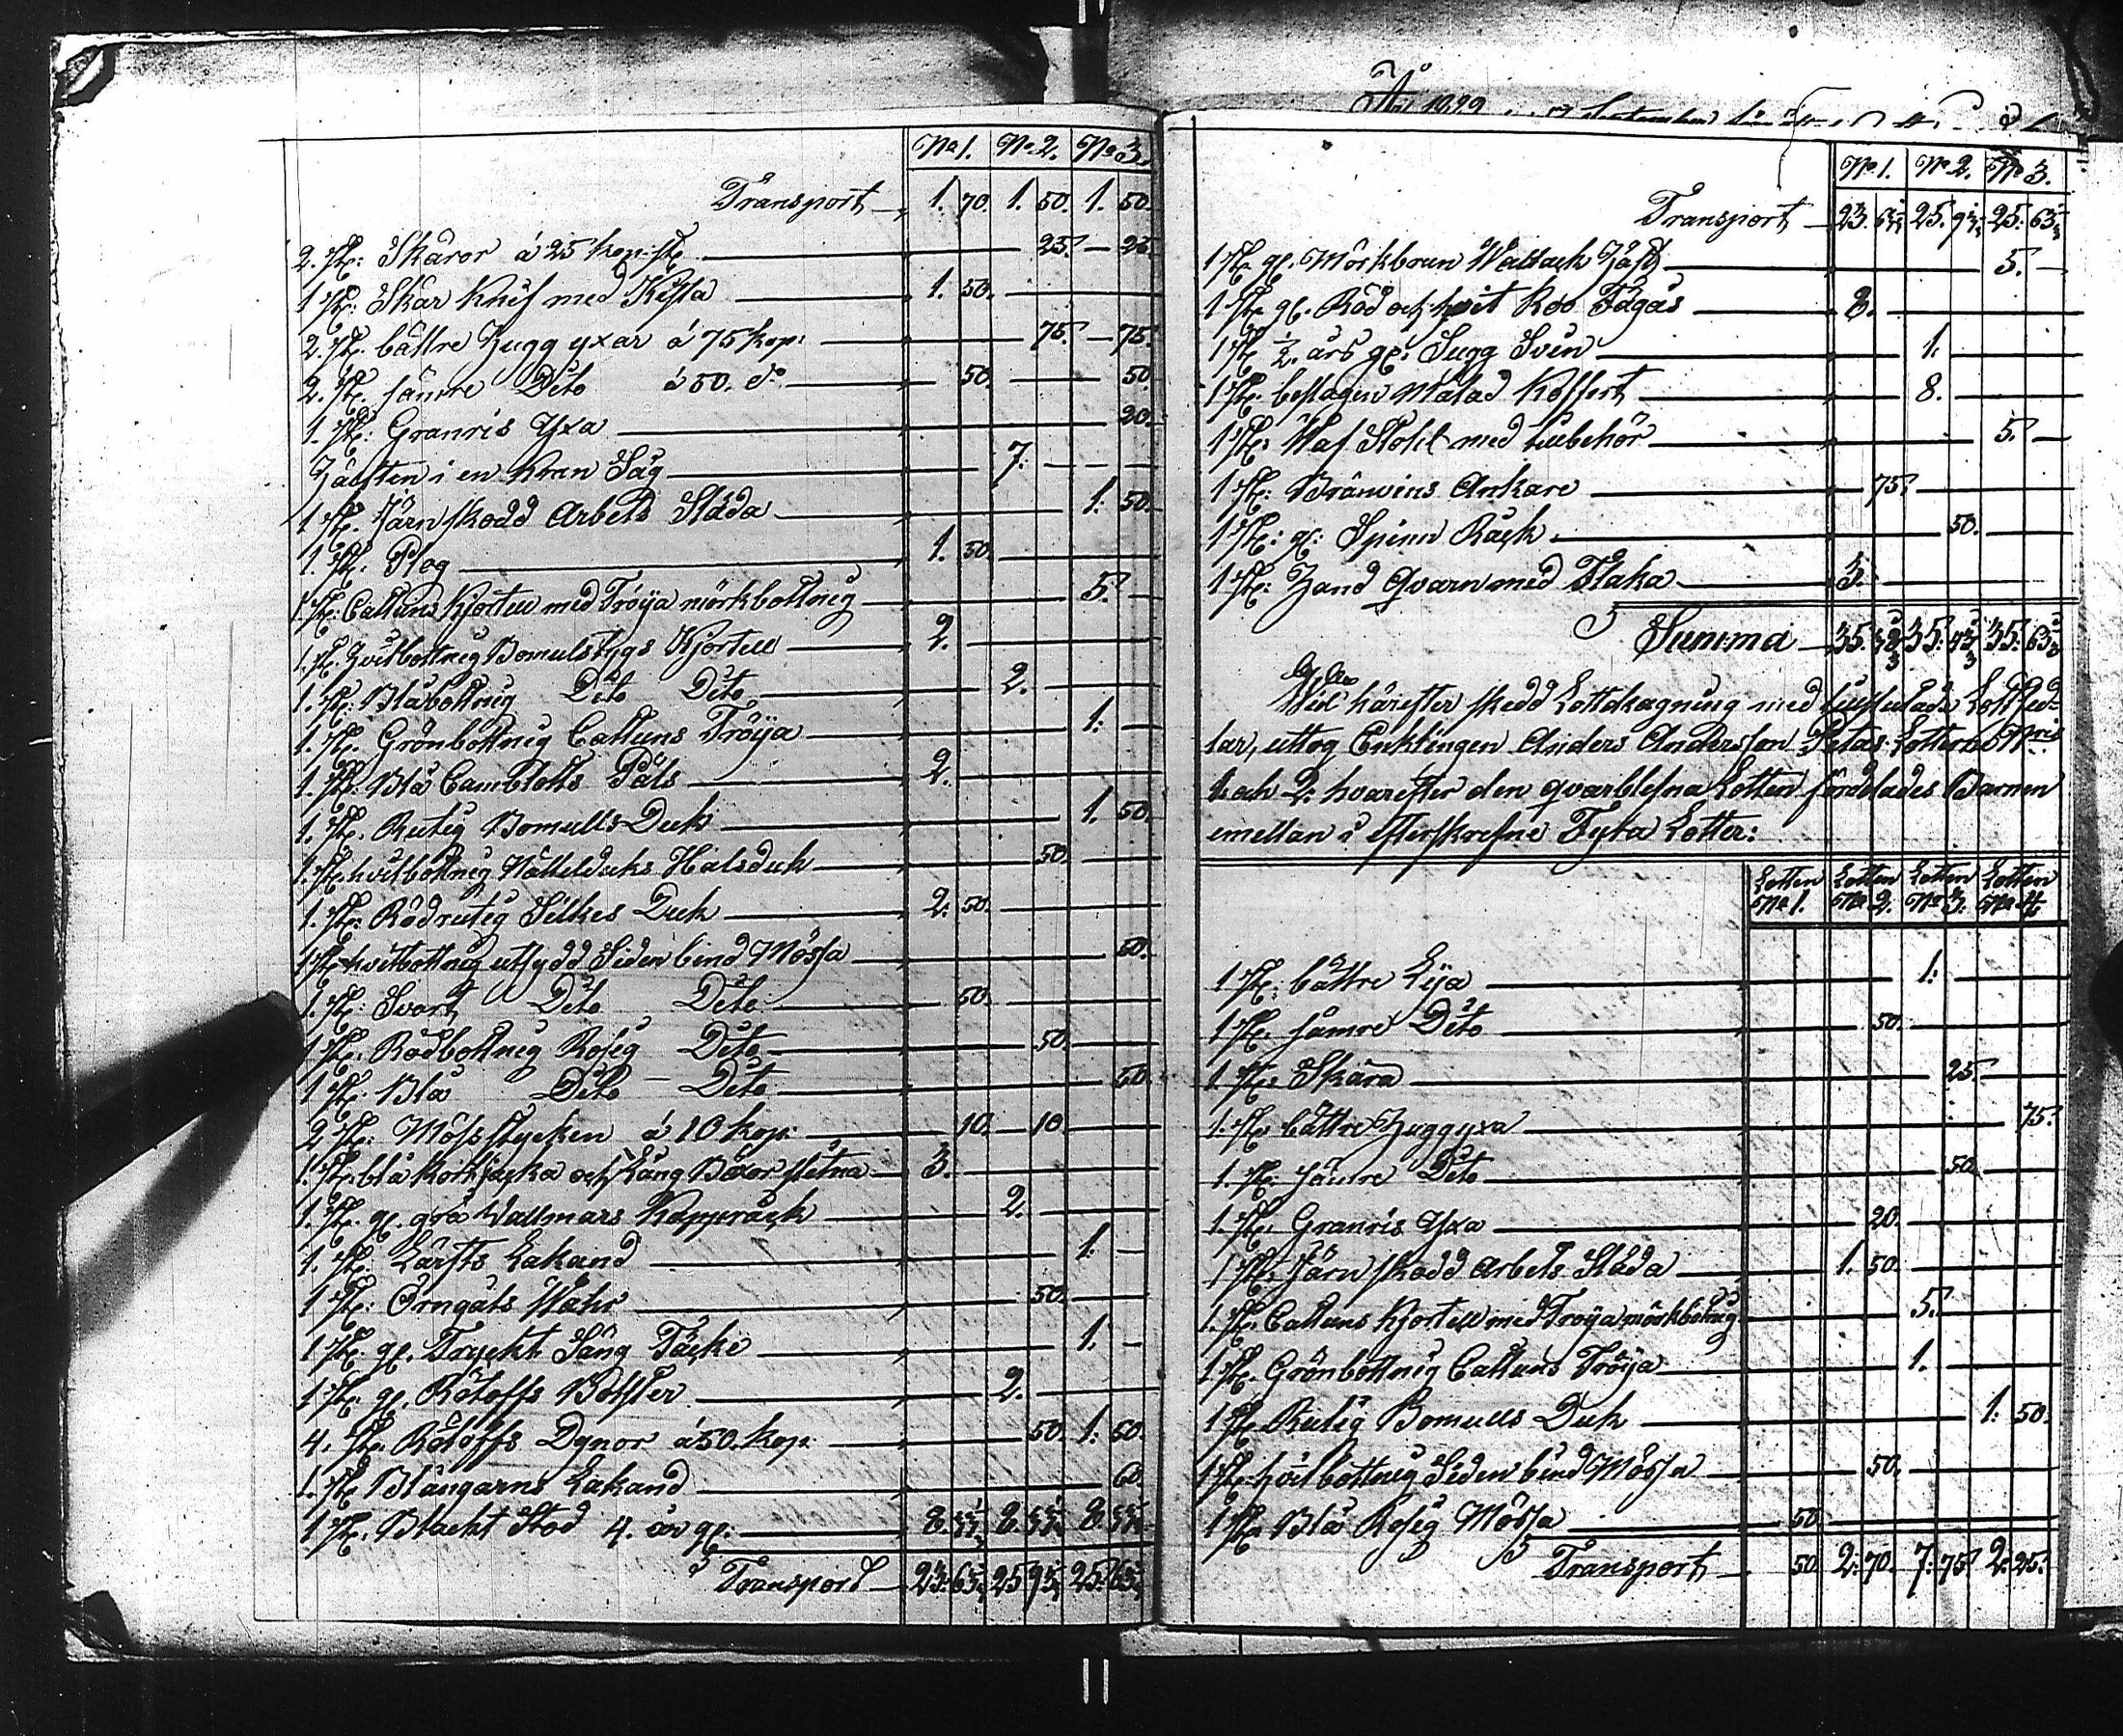 No 1. No 2. No 3.
Transport 1. 70. 1. 50. 1. 50.
2. st: Skäror à 25 kop: st 25. 25.
1 st: Skär Knif med Kista 1. 50.
2. st. bättre Huggyxar á 75 kop: 75. 75.
2. st. sämre Dito á 50. do 50. 50.
1. st: Granris Yxa 20.
Hälften i en Kran Såg 7.
1 st. Järnskodd Arbets Släda 1. 50.
1. st. Plog 1. 50.
1. st: Cattuns Kjortell med Tröija mörkbottnig 5.
1. st. Hvitbottnig Bomulstygs Kjortell 2.
1. st: Blåbottnig Dito Dito 2.
1. st. Grönbottnig Cattuns Tröija 1.
1. st: Blå Camblotts Päls 2.
1. st. Rutig Bomulls Duk 1. 50.
1. st. hvitbottnig Nättelduks Halsduk 50.
1. st: Rödrutig Silkes Duk 2. 50.
1 st hvitbottnig utsydd Siden bind Mössa 50.
1. st: Svart Dito Dito 50.
1 st. Rödbottnig Rosig Dito 50.
1 st. Blå Dito Dito 50.
2 st: Mösstycken á 10 kop: 10. 10.
1. st. blå Kortjacka och Lång Boxor slitna 3.
1. st. gl. grå Vallmars Kappråck 2.
1. st. Lärfts Lakand 1.
1 st: Örngåts Wahr 50.
1 st. gl. Tryckt Säng Täcke 1.
1 st. gl. Rötoffs Bolster 2.
4. st. Rötoffs Dynor á 50. kop: 50. 1. 50.
1. st Blångarns Lakand 60.
1 st. Blackt Stod 4. år gl: 8. 8. 8.
Transport 23. 25. 25.
År 1829 September
No 1. No 2. No 3.
Transport 23. 25. 25.
1 st gl. Mörkbrun Wallack Häst 5.
1 st gl. Röd och hvit Koo Fagås 8.
1 st ½. års gl: Sugg Svin 1.
1 st. beslagen Målad Koffert 8.
1 st: Waf Stohl med tillbehör 5.
1 st: Bränvins Ankare 75.
1 st: gl: Spinn Råck 50.
1 st: Hand Qvarn med Flaka 3.
Summa 35. 35. 35.
Wid härefter skedd Lottdragning med Lottsed-
lar, uttog Enklingen Anders Andersson Lotterne Nris
1. och 2. hvarefter den qvarblefna Lotten fördelades Barnen
emellan i efterskrefne Fyra Lotter:
Lotten No 1. Lotten No 2. Lotten No 3. Lotten No 4.
1 st: bättre Lija 1.
1 st. sämre Dito 50.
1 st. Skära 25.
1. st. bättre Huggyxa 75.
1. st. sämre Dito 50.
1. st. Granris Yxa 20.
1 st. Järnskodd Arbets Släda 1. 50.
1. st. Cattuns Kjortell med Tröija mörkbotnig 5.
1 st. Grönbottnig Cattuns Tröija 1.
1 st Rutig Bomulls Duk 1. 50.
1 st. hvitbottnig Siden bind Mössa 50.
1 st. Blå Rosig Mössa 50
Transport 50. 2. 70. 7. 75 2. 25.